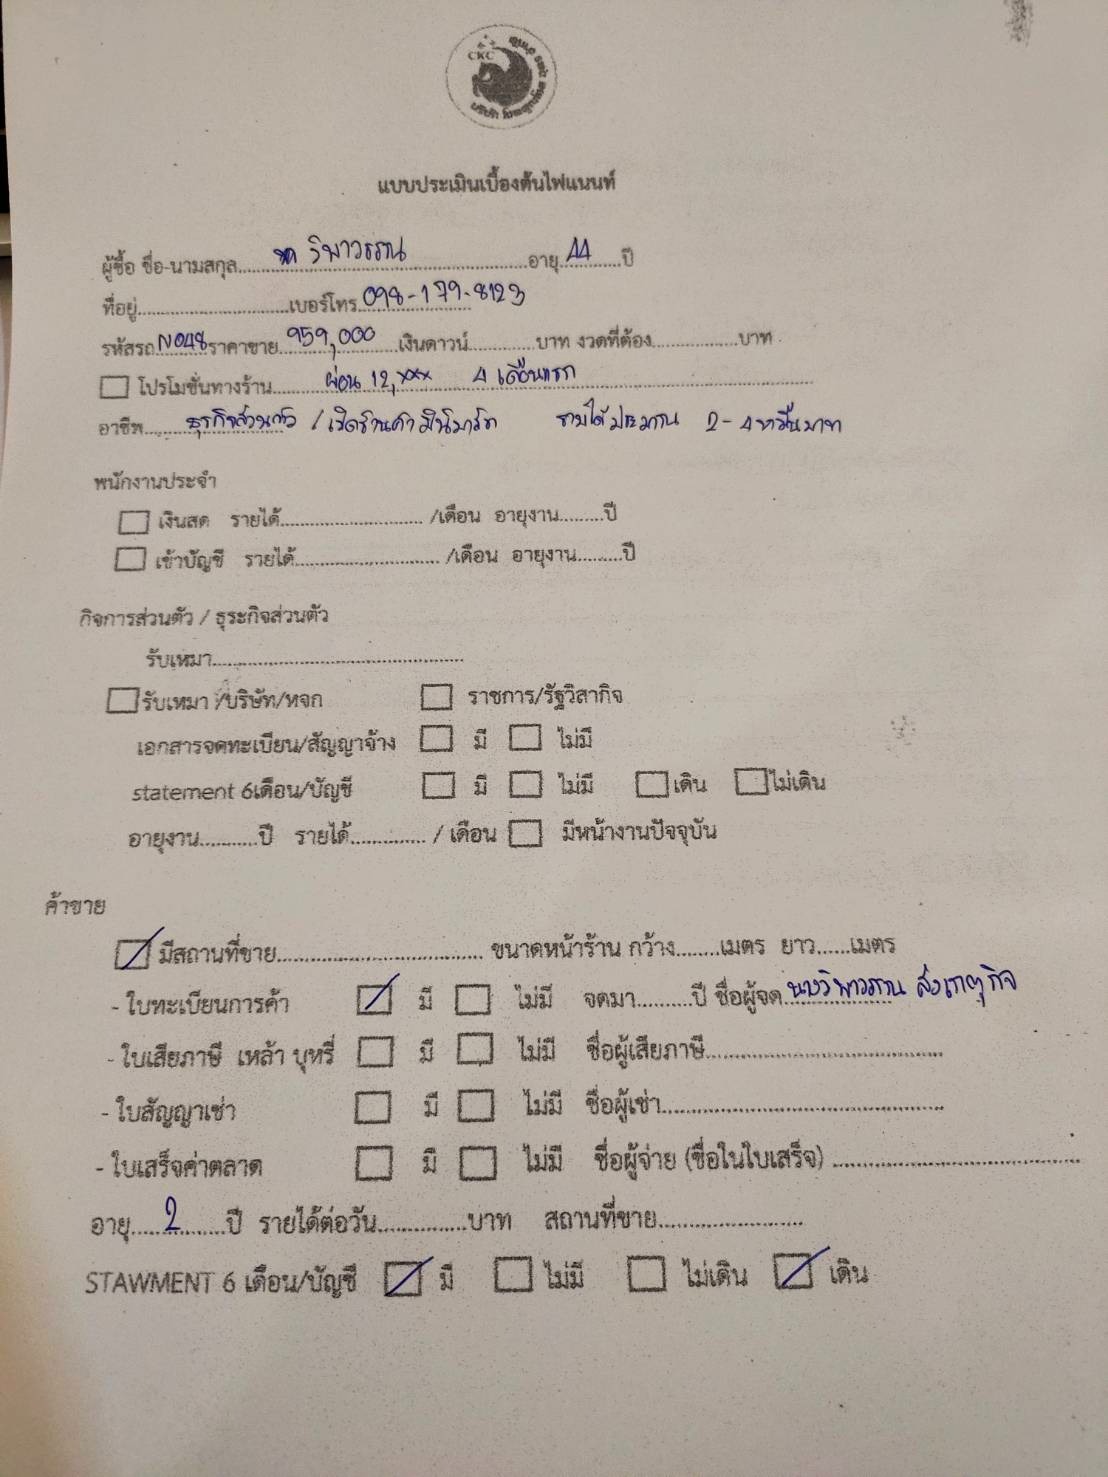 CKC
แบบประเมินเบื้องต้นไฟแนนท์
ผู้ซื้อ ชื่อ-นามสกุล.....วิพาวรรณ.....อายุ.44.ปี
ที่อยู่..............................เบอร์โทร.098-179-8123
รหัสรถ.N048.ราคาขาย.959,000.เงินดาวน์.............บาท งวดที่ต้อง.................บาท
โปรโมชั่นทางร้าน.....ผ่อน 12,xxx 4 เดือนแรก
อาชีพ.....ธุรกิจส่วนตัว / เปิดร้านค้า มินิมาร์ท รายได้ประมาณ 2-4 หมื่นบาท
พนักงานประจำ
เงินสด รายได้........................... /เดือน อายุงาน.........ปี
เข้าบัญชี รายได้........................... /เดือน อายุงาน.........ปี
กิจการส่วนตัว / ธุระกิจส่วนตัว
รับเหมา...............................................
รับเหมา /บริษัท/หจก ราชการ/รัฐวิสากิจ
เอกสารจดทะเบียน/สัญญาจ้าง มี ไม่มี
statement 6เดือน/บัญชี มี ไม่มี เดิน ไม่เดิน
อายุงาน...........ปี รายได้.............. / เดือน มีหน้างานปัจจุบัน
ค้าขาย
มีสถานที่ขาย.................................. ขนาดหน้าร้าน กว้าง........เมตร ยาว......เมตร
- ใบทะเบียนการค้า มี ไม่มี จดมา..........ปี ชื่อผู้จด.นางวิพาวรรณ ส่งเกตุกิจ
- ใบเสียภาษี เหล้า บุหรี่ มี ไม่มี ชื่อผู้เสียภาษี.....................................
- ใบสัญญาเช่า มี ไม่มี ชื่อผู้เช่า...........................................
- ใบเสร็จค่าตลาด มี ไม่มี ชื่อผู้จ่าย (ชื่อในใบเสร็จ) .....................................
อายุ.....2.....ปี รายได้ต่อวัน..............บาท สถานที่ขาย......................
STAWMENT 6 เดือน/บัญชี มี ไม่มี ไม่เดิน เดิน